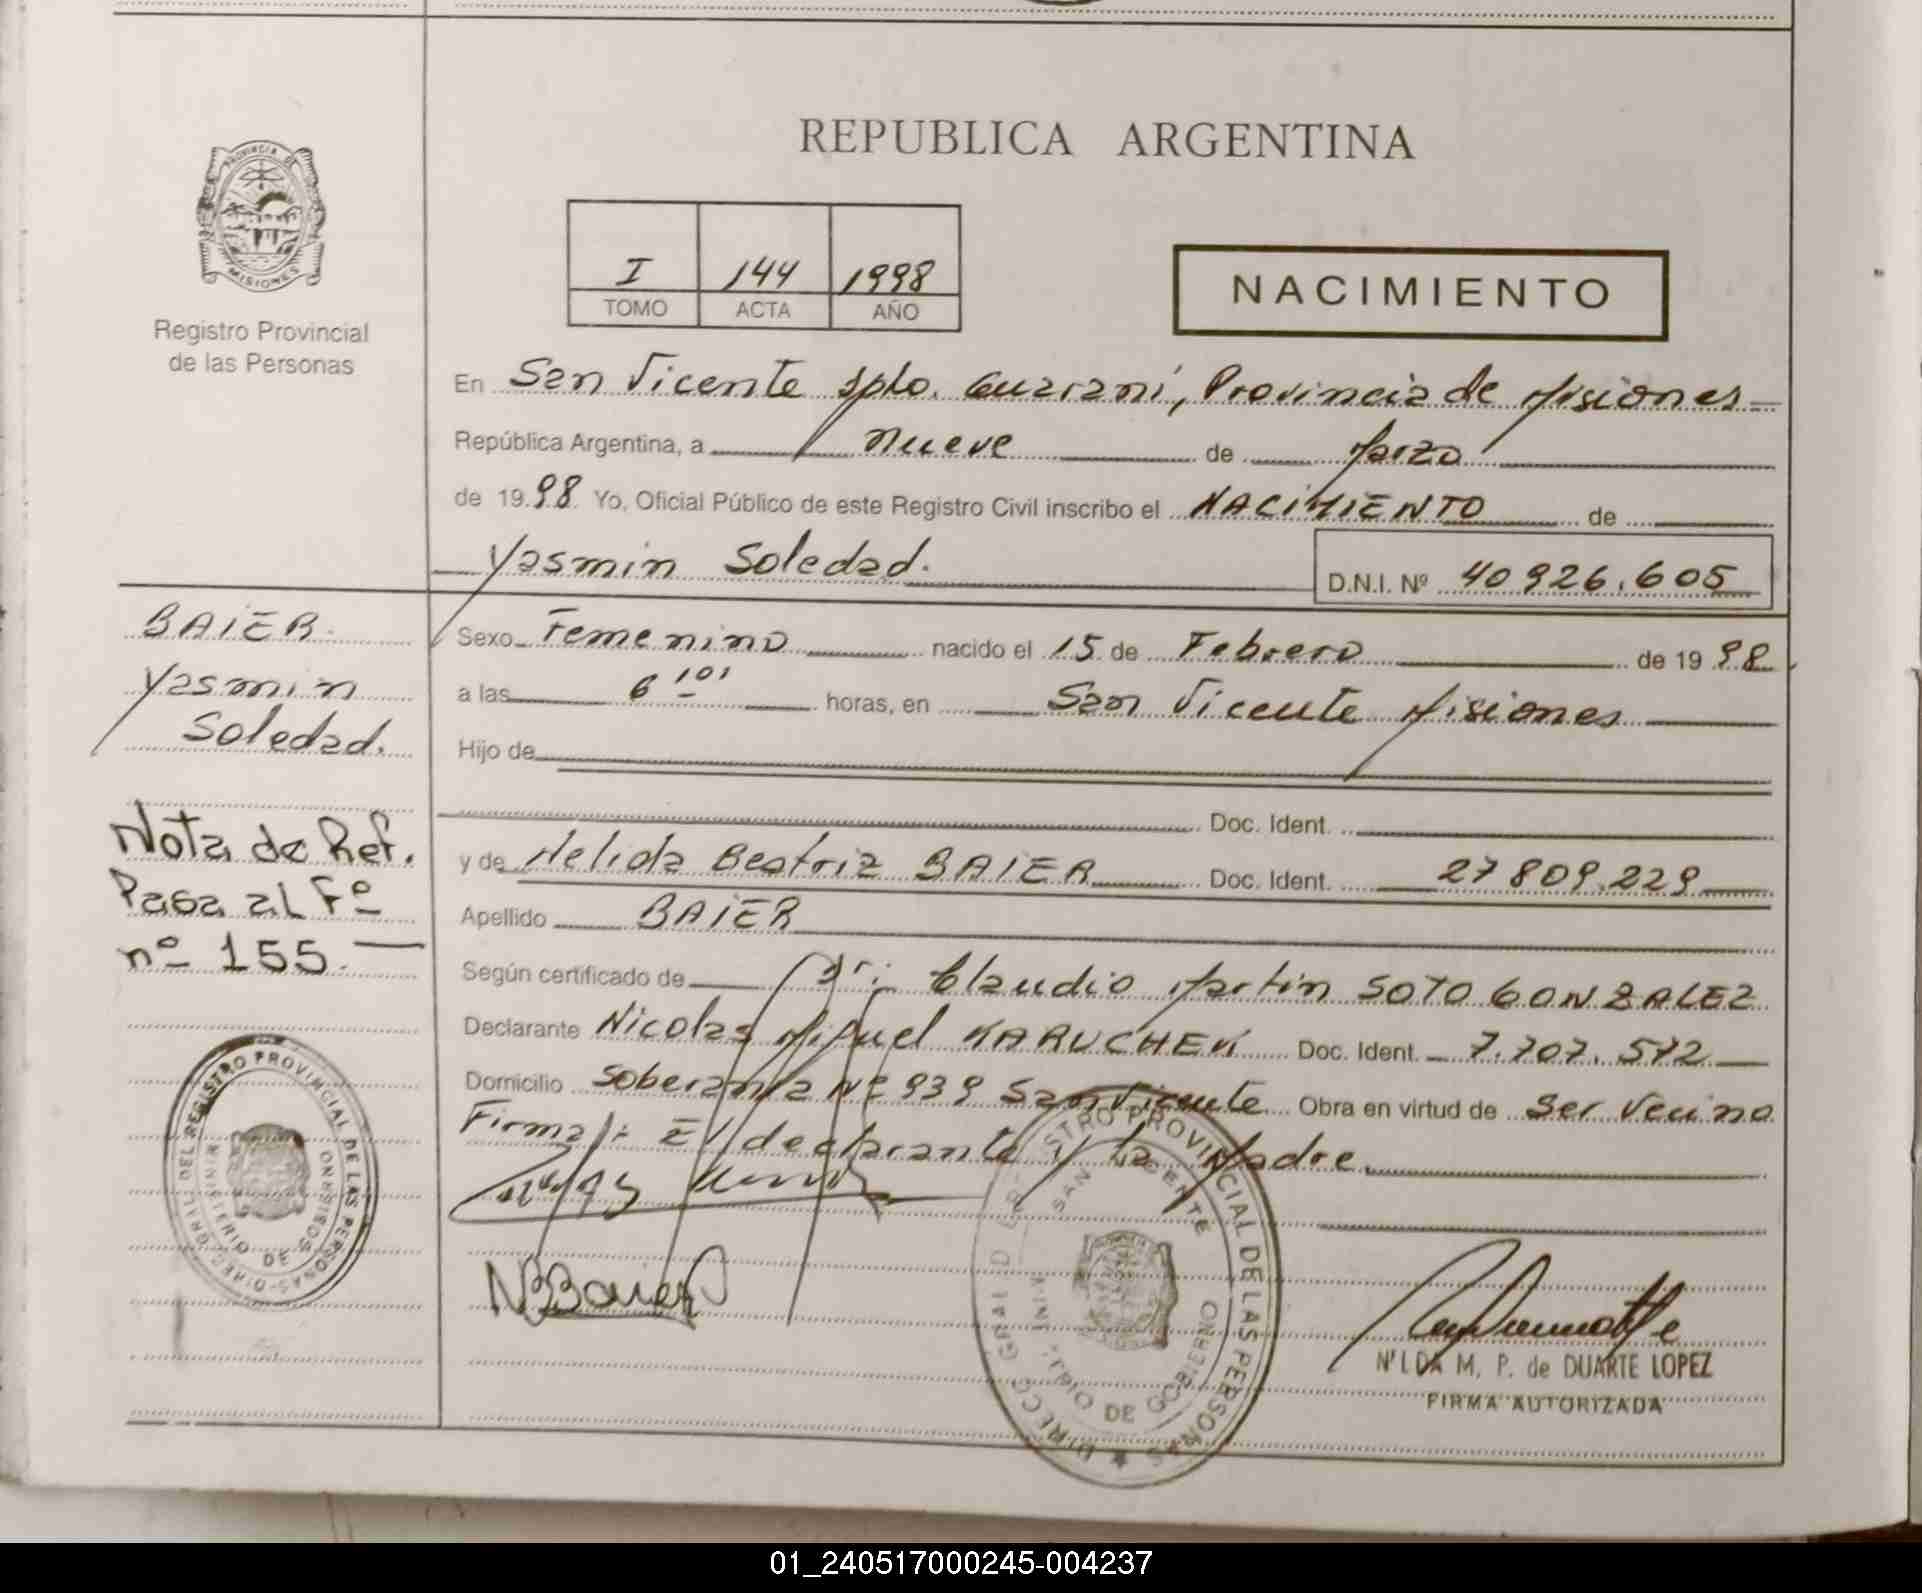 REPUBLICA ARGENTINA
PROVINCIA DE
MISIONES
Registro Provincial
de las Personas
I 144 1998
TOMO ACTA AÑO
NACIMIENTO
En San Vicente Dpto. Guaraní, Provincia de Misiones
República Argentina, a nueve de Marzo
de 1998 Yo, Oficial Público de este Registro Civil inscribo el NACIMIENTO de
Yasmin Soledad.
D.N.I. Nº 40926.605
BAIER
Yasmin
Soledad.
Sexo Femenino nacido el 15 de Febrero de 1998
a las 6'10' horas, en San Vicente Misiones
Hijo de
Doc. Ident.
y de Nelida Beatriz BAIER Doc. Ident. 27809.229
Apellido BAIER
Nota de Ref.
Pasa al Fº
nº 155.
Según certificado de Dr: Claudio Martin SOTO GONZALEZ
Declarante Nicolas Miguel Doc. Ident. 7.707.572
Domicilio Soberania Nº 939 San Vicente Obra en virtud de Ser Vecino
Firman: El declarante y la Madre.
NBBaier
DIRECC. GRAL DEL REGISTRO PROVINCIAL DE LAS PERSONAS
MINISTERIO DE GOBIERNO
SAN VICENTE
DIRECC. GRAL DEL REGISTRO PROVINCIAL DE LAS PERSONAS
MINISTERIO DE
MISIONES
NILDA M. P. de DUARTE LOPEZ
FIRMA AUTORIZADA
01_240517000245-004237